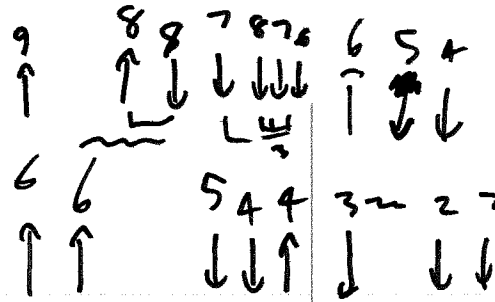 9 8 8 7 8 7 6 6 5 4
6 6 5 4 4 3~ 2